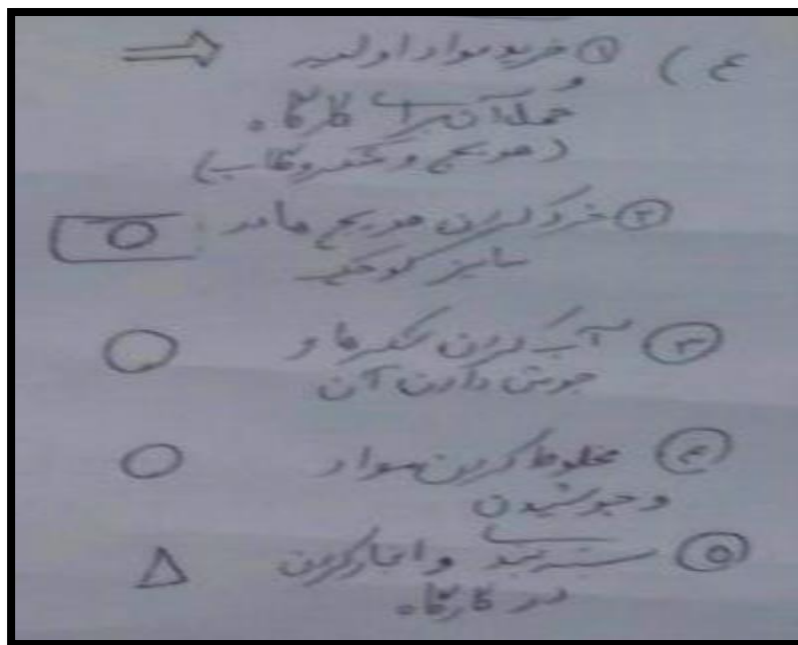 ۴) ① خرید مواد اولیه
و حمل آن به کارگاه.
(هویج و شکر و گلاب)
② خرد کردن هویج ها در
سایز کوچک
③ آب کردن شکرها و
جوش دادن آن
④ مخلوط کردن مواد
و جوشیدن
⑤ بسته بندی و انبار کردن
در کارگاه.